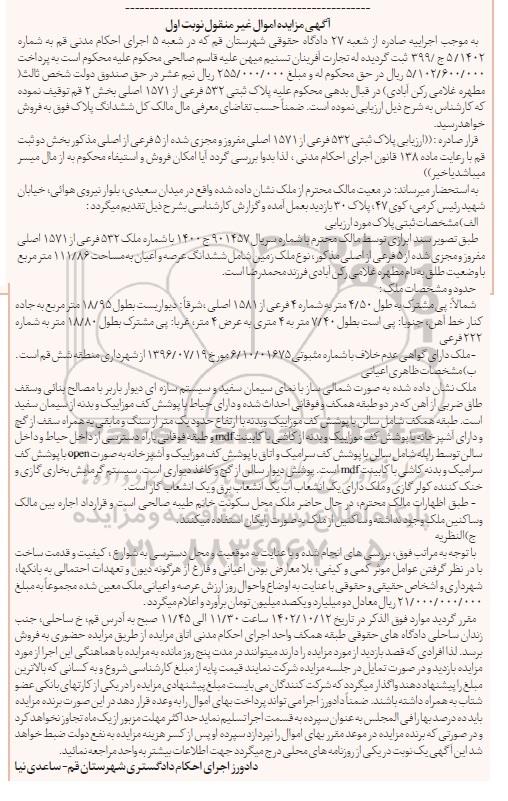 آگهی مزایده اموال غیر منقول نوبت اول
به موجب اجراییه صادره از شعبه ۲۷ دادگاه حقوقی شهرستان قم که در شعبه ۵ اجرای احکام مدنی قم به شماره
۱۴۰۲/۵ ج/۳۹۹ ثبت گردیده له تجارت آفرینان تسنیم میهن علیه قاسم صالحی محکوم علیه محکوم است به پرداخت
۵/۱۰۲/۶۰۰/۰۰۰ ریال در حق محکوم له و مبلغ ۲۵۵/۰۰۰/۰۰۰ ریال نیم عشر در حق صندوق دولت شخص ثالث(
مطهره غلامی رکن آبادی) در قبال بدهی محکوم علیه پلاک ثبتی ۵۳۲ فرعی از ۱۵۷۱ اصلی بخش ۲ قم توقیف نموده
که کارشناس به شرح ذیل ارزیابی نموده است. ضمناً حسب تقاضای معرفی مال مالک کل ششدانگ پلاک فوق به فروش
خواهد رسید.
قرار صادره : ((ارزیابی پلاک ثبتی ۵۳۲ فرعی از ۱۵۷۱ اصلی مفروز و مجزی شده از ۵ فرعی از اصلی مذکور بخش دو ثبت
قم با رعایت ماده ۱۳۸ قانون اجرای احکام مدنی ، لذا بدوا بررسی گردد آیا امکان فروش و استیفاء محکوم به از مال میسر
میباشد یا خیر))
به استحضار میرساند: در معیت مالک محترم از ملک نشان داده شده واقع در میدان سعیدی، بلوار نیروی هوائی، خیابان
شهید رئیس کرمی، کوی ۴۷، پلاک ۳۰ بازدید بعمل آمده و گزارش کارشناسی بشرح ذیل تقدیم میگردد :
الف) مشخصات ثبتی پلاک مورد ارزیابی
طبق تصویر سند ابرازی توسط مالک محترم با شماره سریال ۹۰۱۴۵۷ ج ۱۴۰۰ با شماره ملک ۵۳۲ فرعی از ۱۵۷۱ اصلی
مفروز و مجزی شده از ۵ فرعی از اصلی مذکور، نوع ملک زمین شامل ششدانگ عرصه و اعیان به مساحت ۱۱۱/۸۶ متر مربع
با وضعیت طلق به نام مطهره غلامی رکن آبادی فرزند محمدرضا است.
حدود و مشخصات ملک:
شمالاً: پی مشترک به طول ۴/۵۰ متر به شماره ۴ فرعی از ۱۵۸۱ اصلی ، شرقاً : دیواریست بطول ۱۸/۹۵ متر مربع به جاده
کنار خط آهن، جنوبا: پی است بطول ۷/۴۰ متر به ۴ متری به عرض ۴ متر، غربا: پی مشترک بطول ۱۸/۸۰ متر به شماره
۲۲۲ فرعی
-ملک دارای گواهی عدم خلاف با شماره مثبوتی ۶/۱۰/۰۱۶۷۵ مورخ ۱۳۹۶/۰۷/۱۹ از شهرداری منطقه شش قم است.
ب) مشخصات ظاهری اعیانی
ملک نشان داده شده به صورت شمالی ساز با نمای سیمان سفید و سیستم سازه ای دیوار باربر با مصالح بنائی وسقف
طاق ضربی از آهن که در دو طبقه همکف و فوقانی احداث شده و دارای حیاط با پوشش کف موزاییک و بدنه از سیمان سفید
است. طبقه همکف شامل سالن با پوشش کف موزاییک و بدنه با ارتفاع حدود یک متر از سنگ و مابقی به همراه سقف از گچ
و دارای آشپزخانه با پوشش کف موزاییک و بدنه از کاشی با کابینت mdf و طبقه فوقانی با راه دسترسی از داخل حیاط و داخل
سالن توسط راپله شامل سالن با پوشش کف سرامیک و اتاق با پوشش کف موزاییک و آشپزخانه به صورت open با پوشش کف
سرامیک و بدنه کاشی با کابینت mdf است. پوشش دیوار سالن از گچ و کاغذ دیواری است. سیستم گرمایش بخاری گازی و
خنک کننده کولر گازی و ملک دارای یک انشعاب آب یک انشعاب برق و یک انشعاب گاز است.
- طبق اظهارات مالک محترم، در حال حاضر ملک محل سکونت خانم طیبه صالحی است و قرارداد اجاره بین مالک
و ساکنین ملک وجود نداشته و ساکنین از ملک به صورت رایگان استفاده میکنند.
ج) النظریه
با توجه به مراتب فوق، بررسی های انجام شده و با عنایت به موقعیت و محل دسترسی به شوارع ، کیفیت و قدمت ساخت
با در نظر گرفتن عوامل موثر کمی و کیفی، بلا معارض بودن اعیانی و فارغ از هرگونه دیون و تعهدات احتمالی به بانکها،
شهرداری و اشخاص حقیقی و حقوقی با عنایت به اوضاع واحوال روز ارزش عرصه و اعیانی ملک معین شده مجموعاً به مبلغ
۲۱/۰۰۰/۰۰۰/۰۰۰ ریال معادل دو میلیارد و یکصد میلیون تومان برآورد و اعلام میگردد.
مقرر گردید موارد فوق الذکر در تاریخ ۱۴۰۲/۱۰/۱۲ ساعت ۱۱/۳۰ الی ۱۱/۴۵ صبح به آدرس قم، خ ساحلی، جنب
زندان ساحلی دادگاه های حقوقی طبقه همکف واحد اجرای احکام مدنی اتاق مزایده از طریق مزایده حضوری به فروش
برسد. لذا افرادی که قصد بازدید از مورد مزایده را دارند میتوانند در مدت پنج روز مانده به مزایده با هماهنگی این اجرا از مورد
مزایده بازدید و در صورت تمایل در جلسه مزایده شرکت نمایند قیمت پایه از مبلغ کارشناسی شروع و به کسانی که بالاترین
مبلغ را پیشنهاد دهند واگذار میگردد که شرکت کنندگان می بایست مبلغ پیشنهادی مزایده را در یکی از کارتهای بانکی عضو
شتاب به همراه داشته باشند. ضمناً دادورز اجرا می تواند پرداخت بهای اموال را به وعده قرار دهد در این صورت برنده مزایده
باید ده درصد بها را فی المجلس به عنوان سپرده به قسمت اجرا تسلیم نماید حداکثر مهلت مزبور از یک ماه تجاوز نخواهد کرد
و در صورتی که برنده مزایده در موعد مقرر بهای اموال را نپردازد سپرده او پس از کسر هزینه مزایده به نفع دولت ضبط خواهد
شد این آگهی یک نوبت در یکی از روزنامه های محلی درج میگردد جهت اطلاعات بیشتر به واحد مراجعه نمائید.
دادورز اجرای احکام دادگستری شهرستان قم - ساعدی نیا